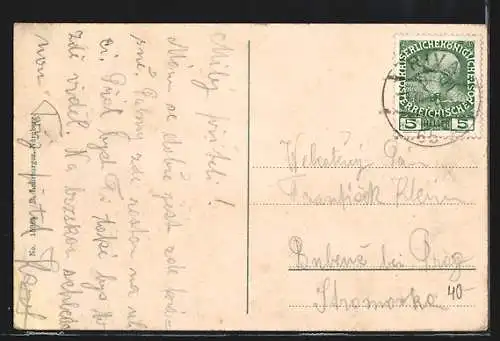 Milý příteli!
Mám se dobře jest zde krás-
ně. Palmy zde rostou na uli-
ci. Přál bych Ti také bys to
zdi viděl Na brzkou shledá-
nou. Tvůj přítel
KAISERLICHE KÖNIGLICHE
ÖSTERREICHISCHE POST
5 HELLER 5
Velectěný Pan
František Klein
Bubeneč bei Prag
Stromovka
40-